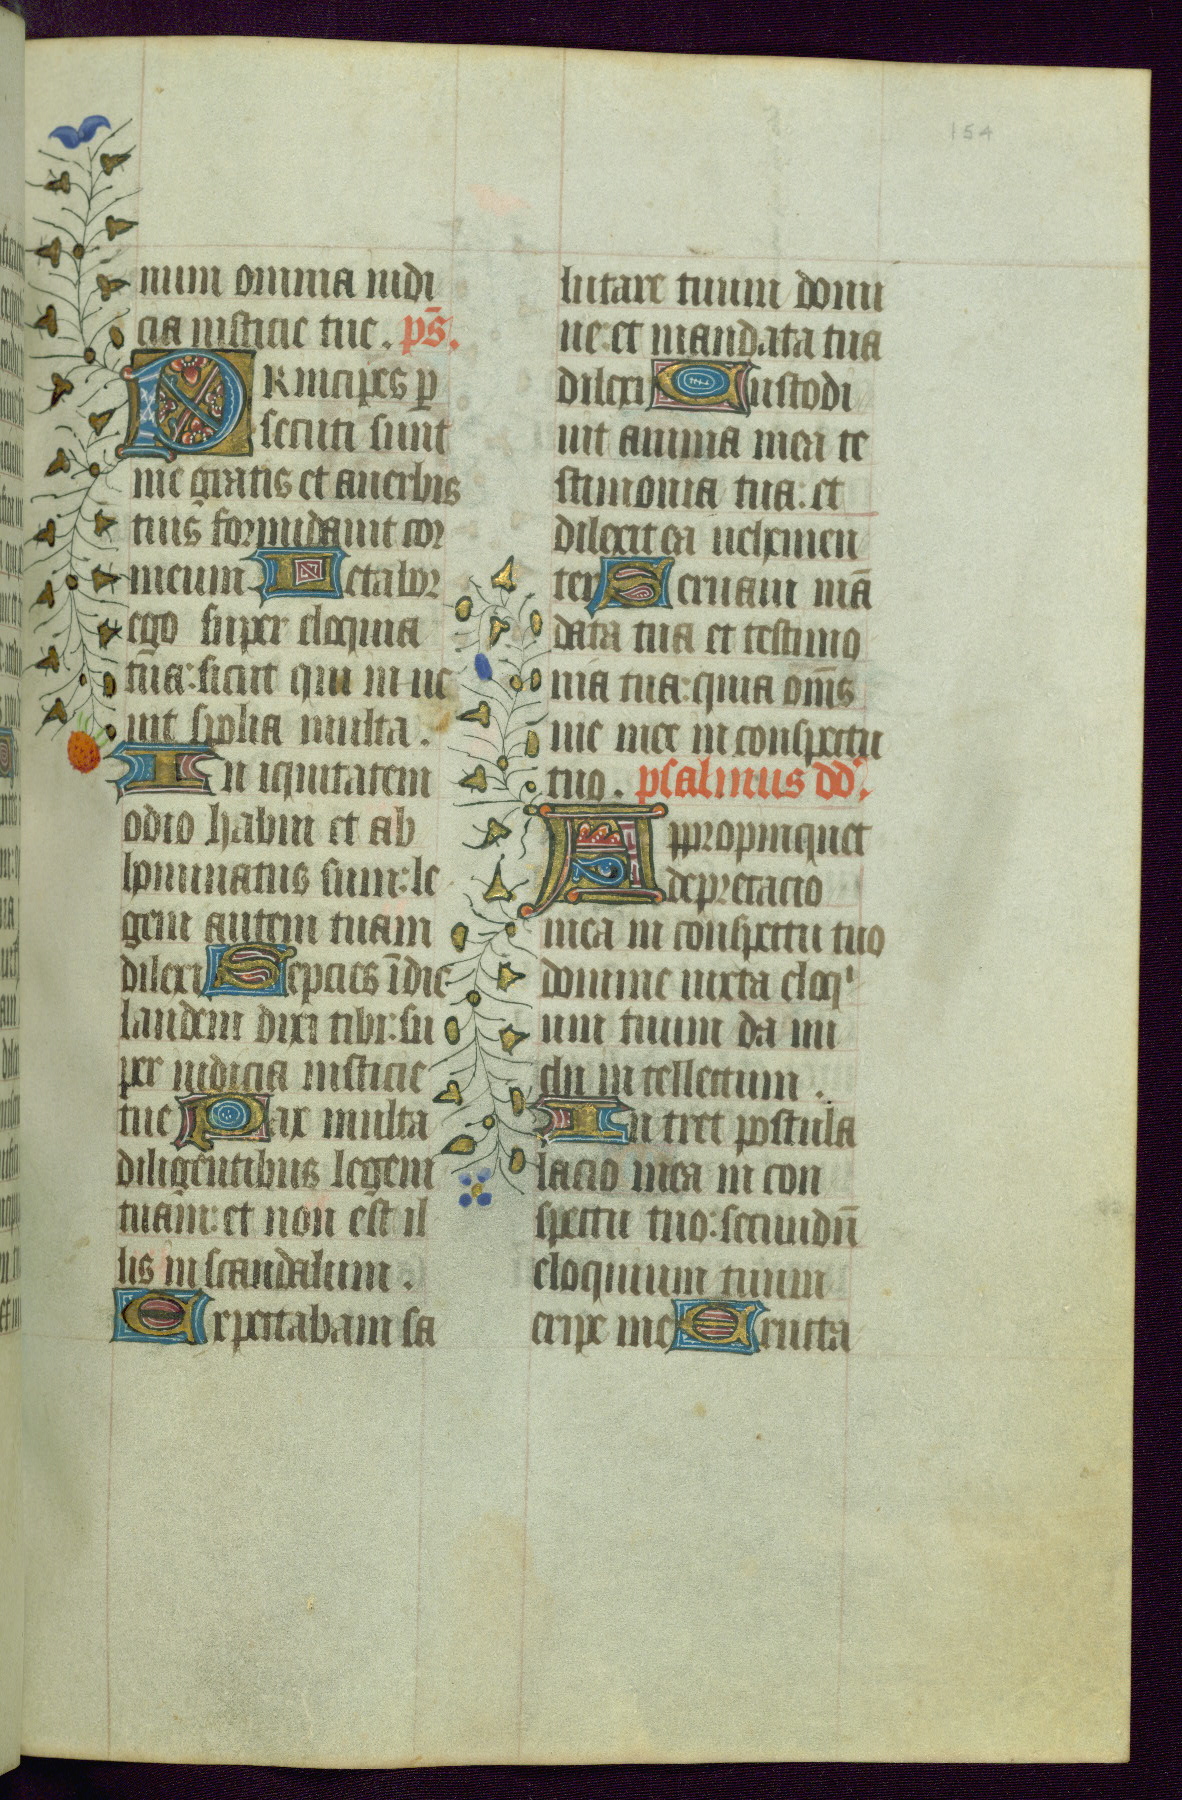 154
num omnia iudi
cia iusticie tue . ps̄.
PRincipes p
secuti sunt
me gratis et auerbis
tuis formidauit cor
meum Letabor
ego super eloquia
tua: sicut qui in ue
nit spolia multa .
In iquitatem
odio habui et ab
hominatus sum: le
gem autem tuam
dilexi Sepcies ī die
laudem dixi tibi: su
per iudicia iusticie
tue Pax multa
diligentibus legem
tuam: et non est il
lis in scandalum .
Expectabam sa
lutare tuum domi
ne: et mandata tua
dilexi Custodi
uit anima mea te
stimonia tua: et
dilexit ea uehemen
ter Seruaui mā
data tua et testimo
nia tua: quia om̄s
uie mee in conspectu
tuo . psalmus dd'.
Appropinquet
deprecacio
mea in conspectu tuo
domine iuxta eloqⁱ
um tuum da mi
chi in tellectum .
In tret postula
lacio mea in con
spectu tuo: secundū
eloquium tuum
eripe me Eructa